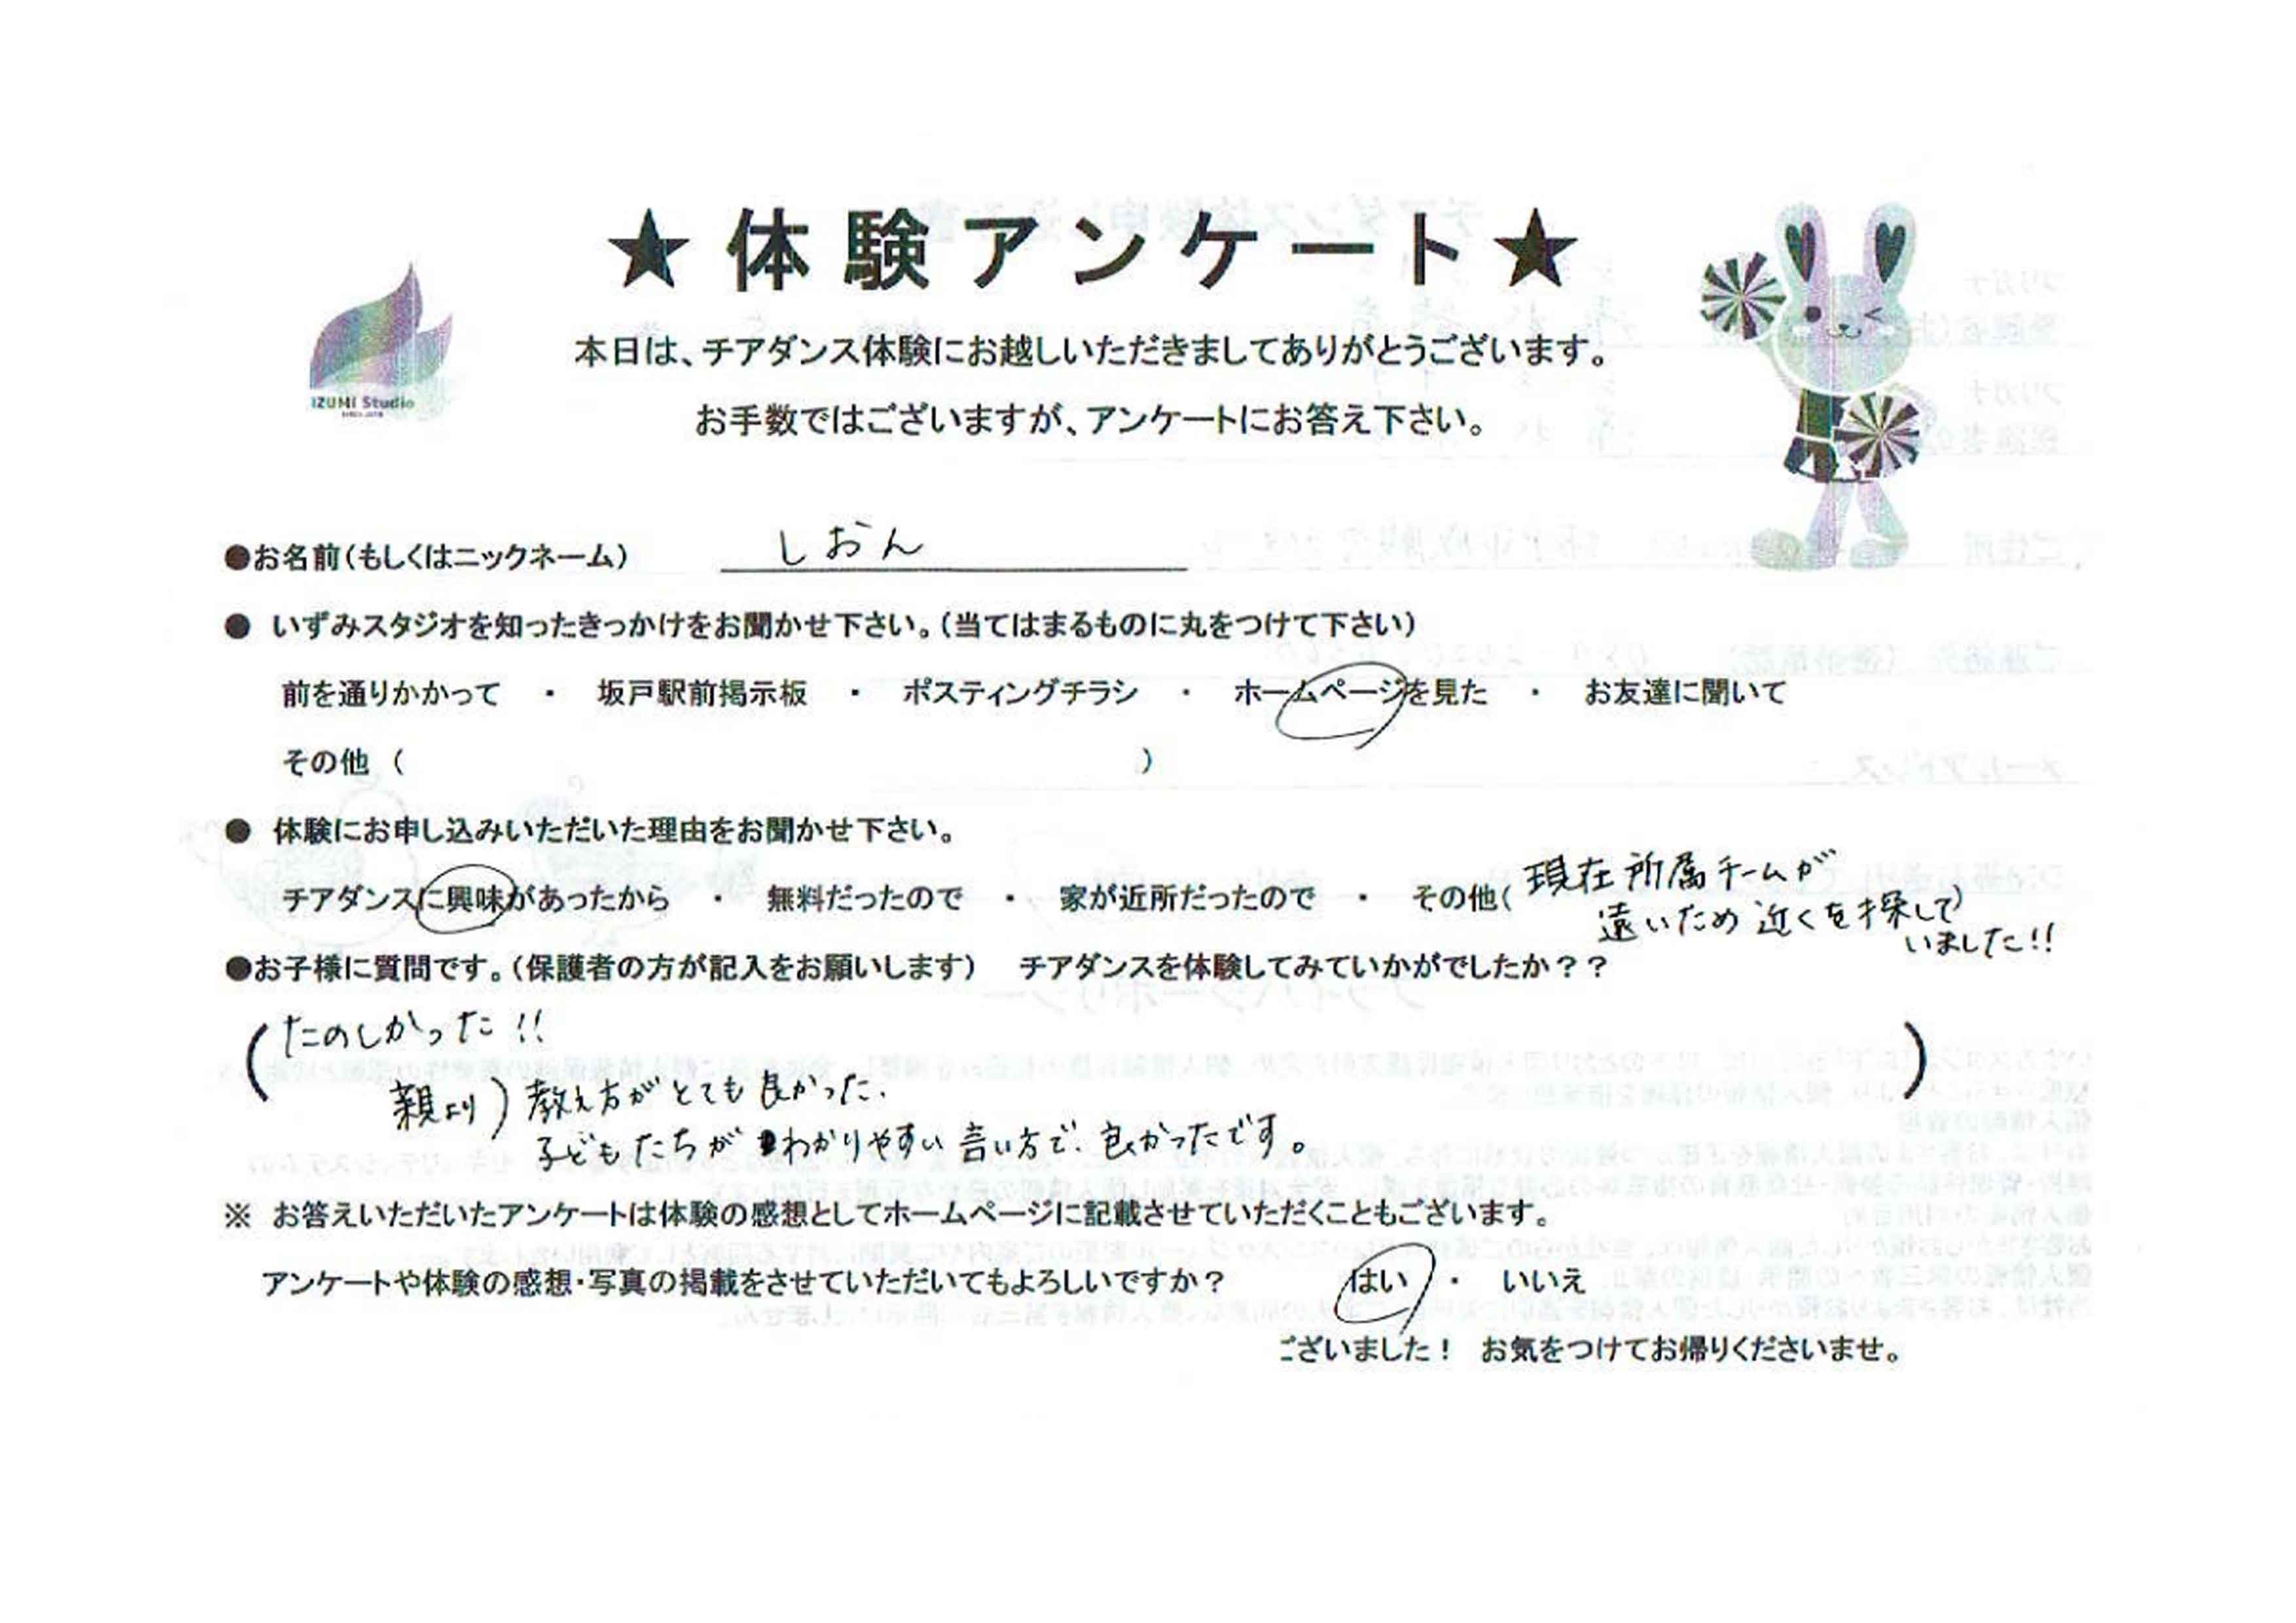 ★体験アンケート★
IZUMI Studio
本日は、チアダンス体験にお越しいただきましてありがとうございます。
お手数ではございますが、アンケートにお答え下さい。
●お名前(もしくはニックネーム) しおん
● いずみスタジオを知ったきっかけをお聞かせ下さい。(当てはまるものに丸をつけて下さい)
前を通りかかって ・ 坂戸駅前掲示板 ・ ポスティングチラシ ・ ホームページを見た ・ お友達に聞いて
その他 ( )
● 体験にお申し込みいただいた理由をお聞かせ下さい。
チアダンスに興味があったから ・ 無料だったので ・ 家が近所だったので ・ その他( 現在所属チームが
遠いため 近くを探して)
いました!!
●お子様に質問です。(保護者の方が記入をお願いします) チアダンスを体験してみていかがでしたか??
(たのしかった!! )
親より) 教え方がとても良かった.
子どもたちが わかりやすい 言い方で、良かったです。
※ お答えいただいたアンケートは体験の感想としてホームページに記載させていただくこともございます。
アンケートや体験の感想・写真の掲載をさせていただいてもよろしいですか? はい ・ いいえ
ございました! お気をつけてお帰りくださいませ。